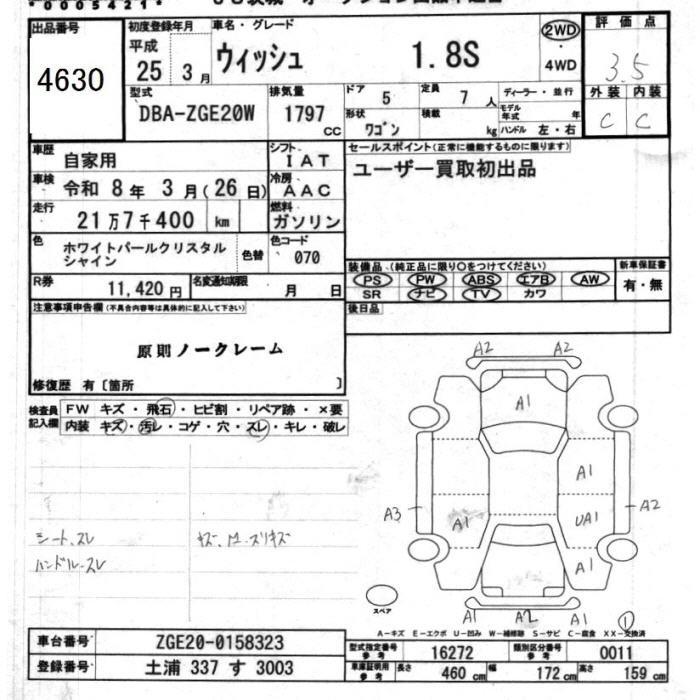 *0005421*
出品番号
4630
初度登録年月
平成
25 3月
車名・グレード
ウィッシュ 1.8S
2WD
・
4WD
評価点
3.5
外装 内装
C C
型式
DBA-ZGE20W
排気量
1797
CC
ドア 5
定員 7人
形状 ワゴン
積載 kg
ディーラー・並行
モデル年式 年
ハンドル 左・右
車歴
自家用
シフト
IAT
車検
令和 8年 3月(26日)
冷房
AAC
走行
21万7千400 km
燃料
ガソリン
色
ホワイトパールクリスタル
シャイン
色替
色コード
070
R券
11,420円
名変通知期限
月 日
セールスポイント(正常に機能するものに限ります)
ユーザー買取初出品
装備品(純正品に限り○をつけてください)
PS PW ABS エアB AW
SR ナビ TV カワ
新車保証書
有・無
後日品
注意事項申告欄(不具合内容等は具体的に記入して下さい)
原則ノークレーム
修復歴 有〔箇所 〕
検査員
記入欄
FW キズ・飛石・ヒビ割・リペア跡・×要
内装 キズ・汚レ・コゲ・穴・スレ・キレ・破レ
シート、スレ
ハンドル、スレ
A2 A2
A1
A1
A3 A1 UA1 A2
A1
A1 A2 A1
スペア
①
A-キズ E-エクボ U-凹み W-補修跡 S-サビ C-腐食 XX-交換済
車台番号
ZGE20-0158323
登録番号
土浦 337 す 3003
型式指定番号
参考
16272
類別区分番号
参考
0011
車庫証明用
参考
長さ 460 cm
幅 172 cm
高さ 159 cm